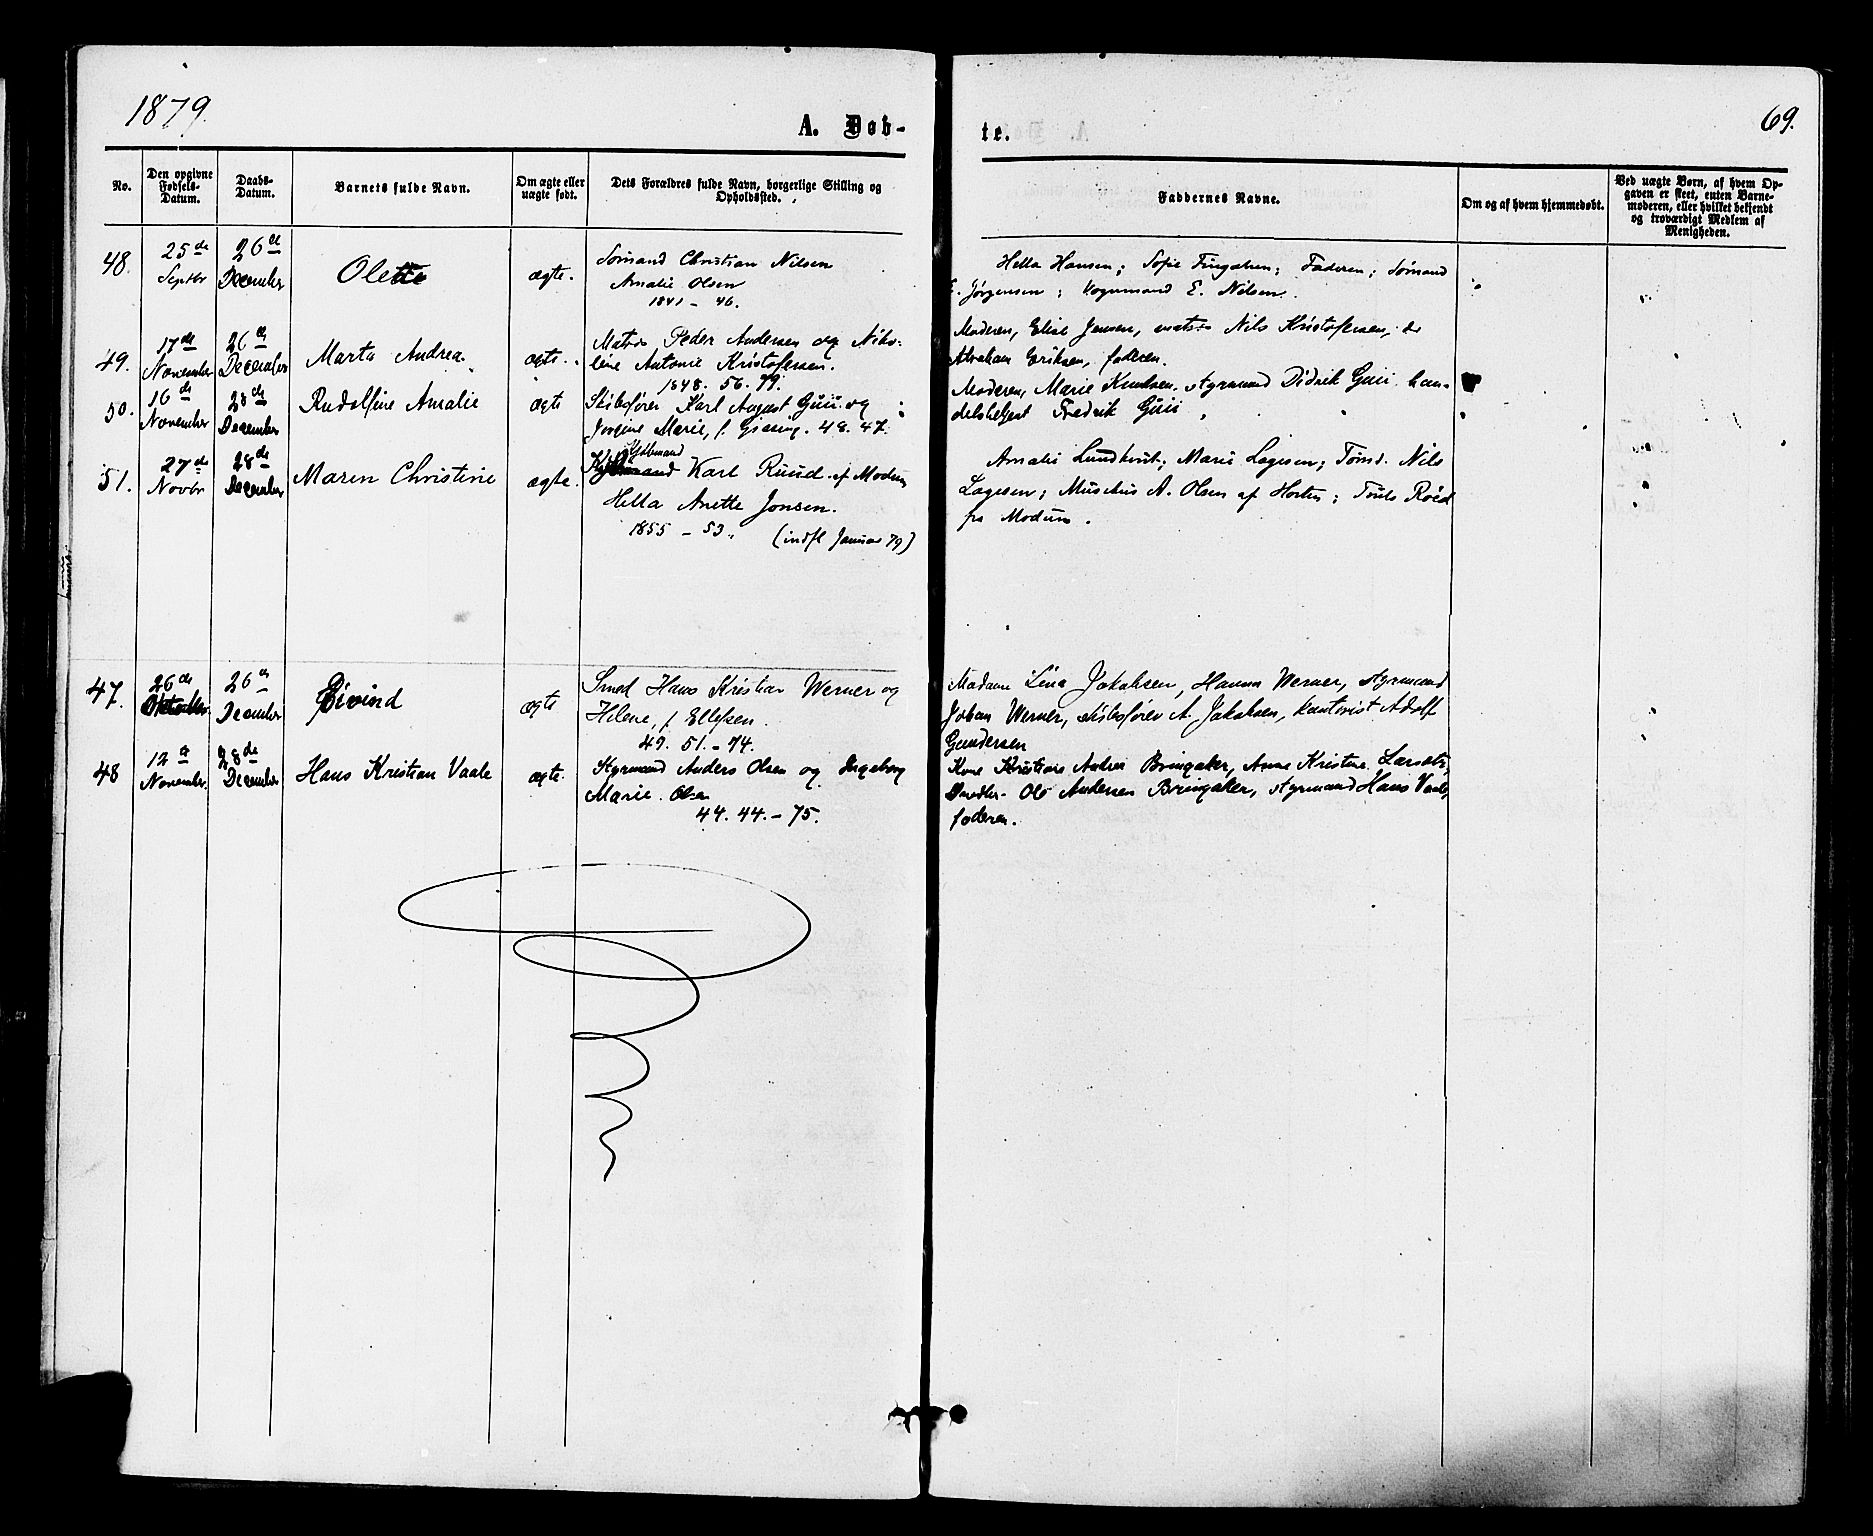 1879.
A. Døb-
te.
69.
No.
Den opgivne Fødsels-Datum.
Daabs-Datum.
Barnets fulde Navn.
Om ægte eller uægte født.
Dets Forældres fulde Navn, borgerlige Stilling og Opholdssted.
Faddernes Navne.
Om og af hvem hjemmedøbt.
Ved uægte Børn, af hvem Opgaven er skeet, enten Barnemoderen, eller hvilket bekjendt og troværdigt Medlem af Menigheden.
48.
25de Septbr
26de December
Olette
ægte.
Sømand Christian Nilsen
Amalie Olsen
1841 - 46.
Hella Hansen; Sofie; Faderen; Sømand
Jørgensen; E. Nilsen.
49.
17de November
26de December
Marta Andrea.
ægte.
Matros Peder Andersen og Niko-
line Antonie Kristofersen.
1848. 56. 79.
Moderen, Elise Jensen, matros Nils Kristofersen, do
Abraham Eriksen, faderen.
50.
16de November
28de December
Rudolfine Amalie
ægte
Skibsfører Karl August Guii og
Jørgine Marie, f. 48. 47.
Moderen, Marie Knudsen, styrmand Didrik Guii, han-
delsbetjent Fredrik Guii
51.
27de Novbr
28de December
Maren Christine
ægte.
Karl Ruud af Modum
Hella Anette Jonsen.
1855 - 53.
(indfl Januar 79)
Amalie Lundkvist; Marie Lagesen; Tømd. Nils
Lagesen; A. Olsen af Horten; Røed
fra Modum.
47.
26de Oktober
26de December
Øivind
ægte
Smed Hans Kristian Werner og
Helene, f Ellefsen.
49. 51. - 74.
Madame Lina Jakobsen, Hanna Werner, styrmand
Johan Werner, skibsfører A. Jakobsen, kontorist Adolf
Gundersen
48
12te November.
28de December
Hans Kristian Vaale
ægte.
Styrmand Anders Olsen og Ingeborg
Marie. Olsen
44. 44. - 75.
Kone Andrea Bringaker, Anne Kristine
Ole Andersen Bringaker, styrmand Hans Vaale,
faderen.